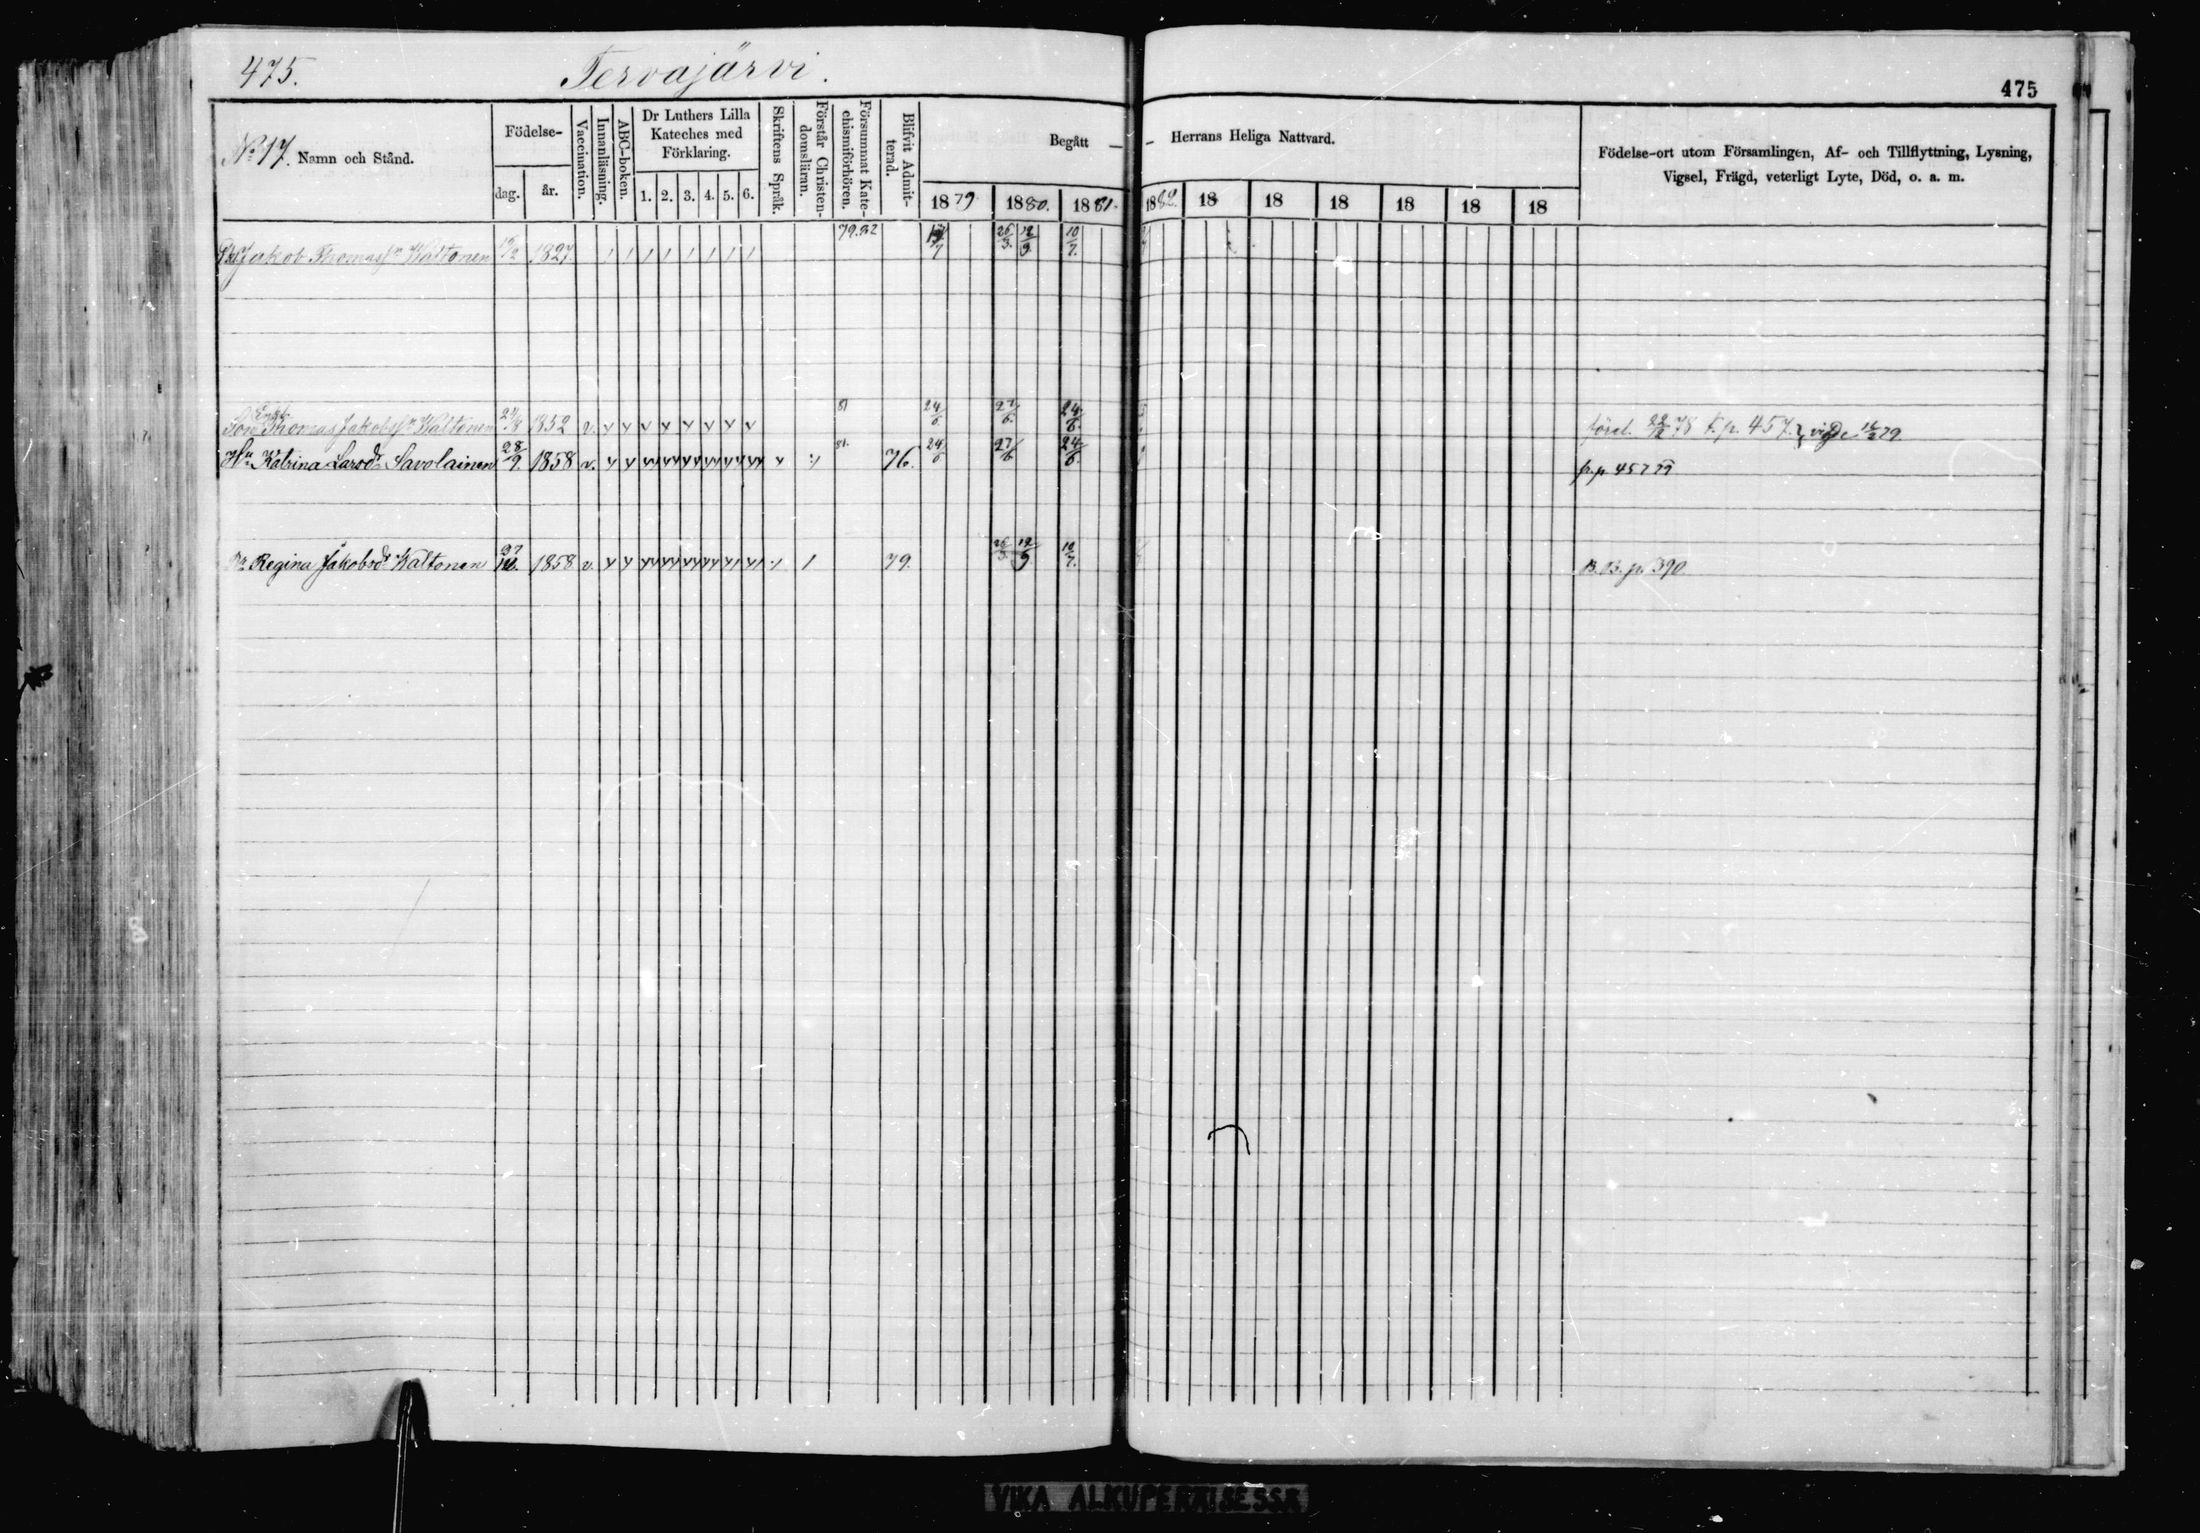 475. Tervajärvi. 475
No 17. Namn och Stånd.
Födelse-
dag. år.
Vaccination.
Innanläsning.
ABC-boken.
Dr Luthers Lilla
Kateches med
Förklaring.
1. 2. 3. 4. 5. 6.
Skriftens Språk.
Förstår Christen-
domsläran.
Försummat Kate-
chismiförhören.
Blifvit Admit-
terad.
Begått — — Herrans Heliga Nattvard.
1879. 1880. 1881. 1882. 18 18 18 18 18 18
Födelse-ort utom Församlingen, Af- och Tillflyttning, Lysning,
Vigsel, Frägd, veterligt Lyte, Död, o. a. m.
Jakob Thomass:n Waltonen 1827 79.82 26/3. 12/9. 10/7.
Son Thomas Jakobss:n Waltonen 1852 v. 81 24/6. 27/6. 24/6. 22/12 78 p. 457. vigde 16/2 79
Hu Katrina Larsdr Savolainen 28/9. 1858 v. 81. 76. 24/6 27/6. 24/6. p. 457 79
Dr Regina Jakobsdr Waltonen 1858 v. 79. 26/3. 12/9 10/7. B.B. p. 390.
VIKA ALKUPERÄISESSÄ